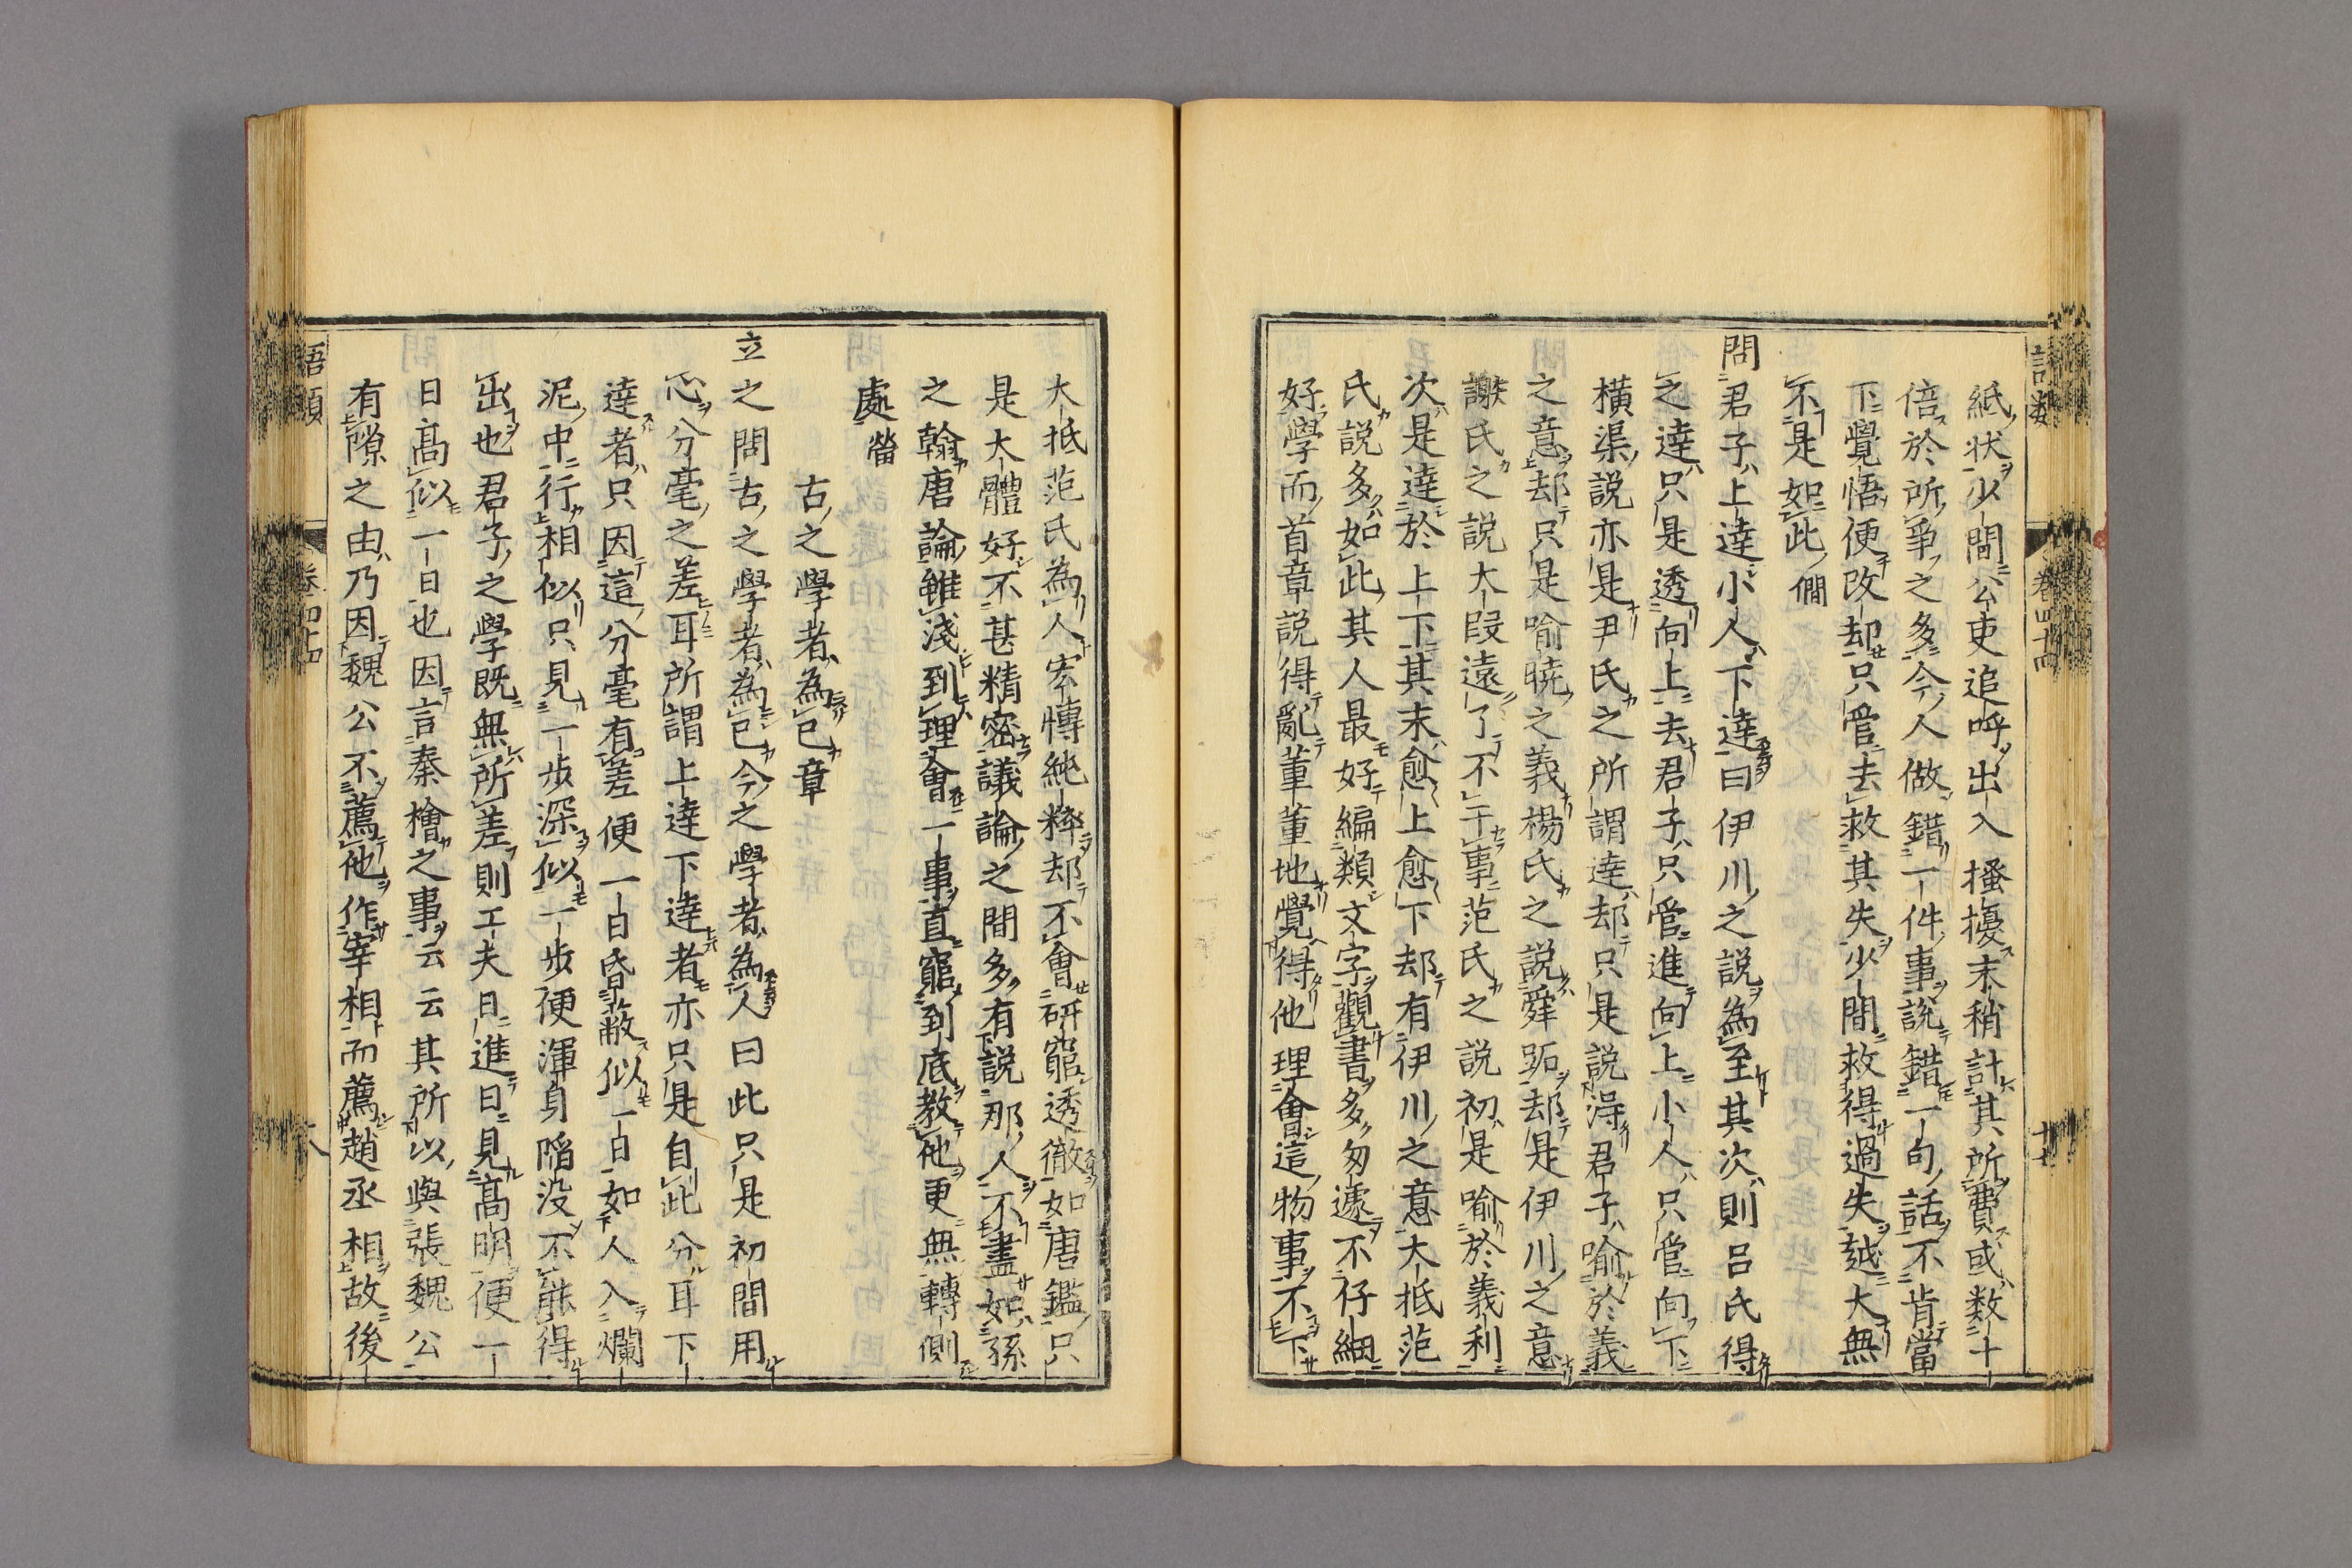 語類
卷四十四
十七
紙状少間公吏追呼出入搔擾末稍計其所費或数十
倍於所爭之多今人做錯一件事說錯一句話不肯當
下覺悟便改却只管去救其失少間救得過失越大無
不是如此僩
問君子上達小人下達曰伊川之說為至其次則呂氏得
之達只是透向上去君子只管進向上小人只管向下
橫渠說亦是尹氏之所謂達却只是說得君子喻於義
之意却只是喻曉之義楊氏之說舜跖却是伊川之意
謝氏之說大段遠了不干事范氏之說初是喻於義利
次是達於上下其末愈上愈下却有伊川之意大抵范
氏說多如此其人最好編類文字觀書多匆遽不仔細
好學而首章說得亂董董地覺得他理會這物事不下
大抵范氏為人宏慱純粹却不會研窮透徹如唐鑑只
是大體好不甚精密議論之間多有說那人不盡如孫
之翰唐論雖淺到理會一事直窮到底教他更無轉側
處㽦
古之學者為己章
立之問古之學者為己今之學者為人曰此只是初間用
心分毫之差耳所謂上達下達者亦只是自此分耳下
達者只因這分毫有差便一日昏蔽似一日如人入爛
泥中行相似只見一步深似一步便渾身陷没不能得
出也君子之學既無所差則工夫日進日見高明便一
日高似一日也因言秦檜之事云云其所以與張魏公
有隙之由乃因魏公不薦他作宰相而薦趙丞相故後
語類
卷四十四
十八